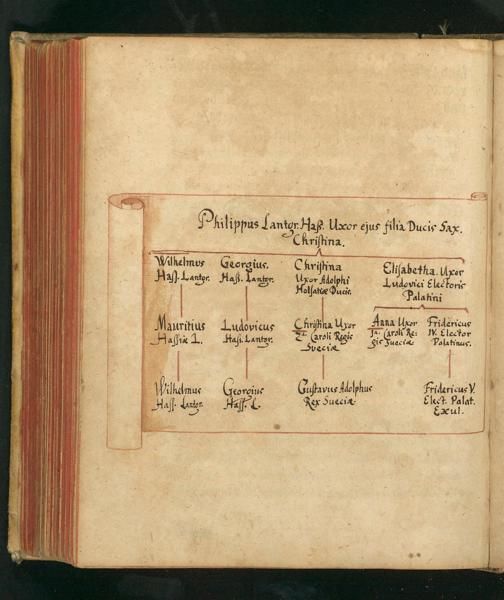 Philippus Lantgr. Haß. Uxor ejus filia Ducis Sax.
Christina.
Wilhelmus
Hass. Lantgr.
Georgius.
Hass. Lantgr.
Christina
Uxor Adolphi
Holsatiæ Ducis.
Elisabetha. Uxor
Ludovici Electoris
Palatini
Mauritius
Hassiæ L.
Ludovicus
Hass. Lantgr.
Christina Uxor
Caroli Regis
Sveciæ
Anna Uxor
Caroli Re:
gis Sueciæ
Fridericus
IV. Elector
Palatinus.
Wilhelmus
Hass. Lantgr.
Georgius
Hass. L.
Gustavus Adolphus
Rex Sueciæ
Fridericus V.
Elect. Palat.
Exul.